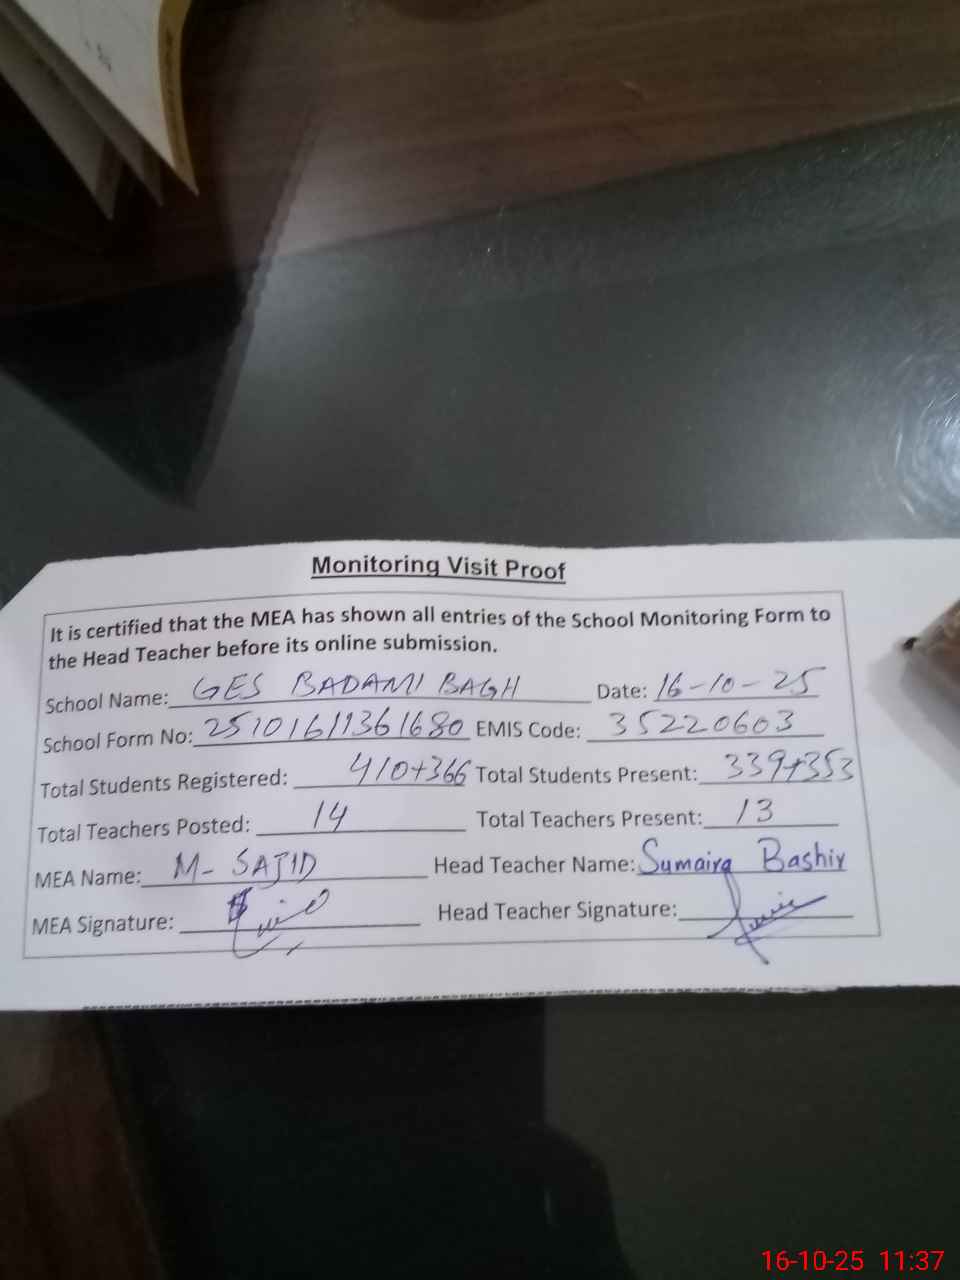 Monitoring Visit Proof
It is certified that the MEA has shown all entries of the School Monitoring Form to
the Head Teacher before its online submission.
School Name: GES BADAMI BAGH Date: 16-10-25
School Form No: 25101611361680 EMIS Code: 35220603
Total Students Registered: 410+366 Total Students Present: 339+353
Total Teachers Posted: 14 Total Teachers Present: 13
MEA Name: M- SAJID Head Teacher Name: Sumaira Bashir
MEA Signature: Head Teacher Signature:
16-10-25 11:37